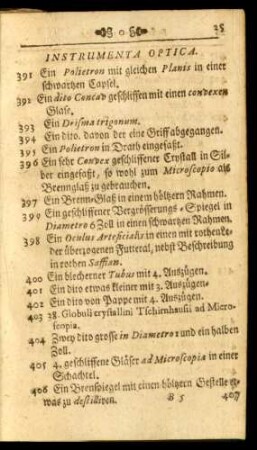 o
25
INSTRUMENTA OPTICA.
391 Ein Polietron mit gleichen Planis in einer
schwartzen Capsel.
391 Ein dito Concav geschliffen mit einen convexen
Glase.
393 Ein Prisma trigonum.
394 Ein dito. davon der eine Griff abgegangen.
395 Ein Polietron in Drath eingefaßt.
396 Ein sehr Convex geschliffener Crystall in Sil-
ber eingefaßt, so wohl zum Microscopio als
Brennglaß zu gebrauchen.
397 Ein Brenn-Glaß in einem höltzern Rahmen.
399 Ein geschliffener Vergrösserungs-Spiegel in
Diametro 6 Zoll in einen schwartzen Rahmen.
398 Ein Oculus Arteficialis in einen mit rothen
der überzogenen Futteral, nebst Beschreibung
in rothen Saffian.
400 Ein blecherner Tubus mit 4. Auszügen.
401 Ein dito etwas kleiner mit 3. Auszügen.
402 Ein dito von Pappe mit 4. Auszügen.
403 28. Globuli crystallini Tschienhausii ad Micro-
scopia.
404 Zwey dito grosse in Diametro 1 und ein halben
Zoll.
405 4. geschliffene Gläser ad Microscopia in einer
Schachtel.
406 Ein Brenspiegel mit einen höltzern Gestelle et-
was zu destilliren.
B 5
407